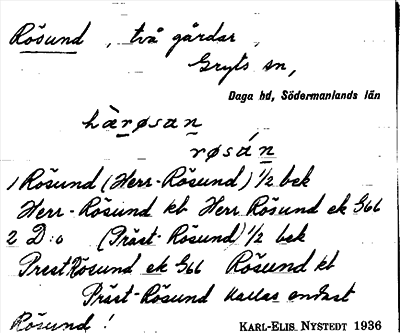 Rösund, två gårdar,
Gryts sn,
Daga hd, Södermanlands län
hàrøsan
røsán
1 Rösund (Herr-Rösund) 1/2 bek
Herr-Rösund kb Herr Rösund ek G66
2 D:o (Präst-Rösund) 1/2 bek
Prest Rösund ek G66 Rösund kb
Präst-Rösund kallas endast
Rösund!
KARL-ELIS. NYSTEDT 1936